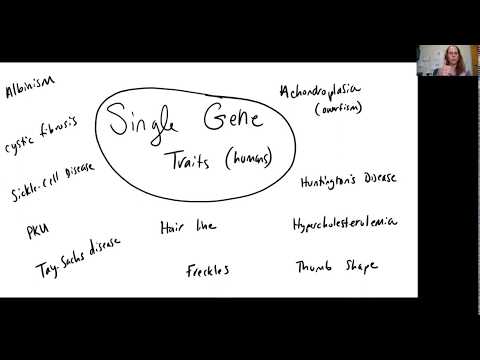 Albinism
Cystic fibrosis
Sickle-Cell Disease
PKU
Tay-Sachs disease
Single Gene
Traits (humans)
Hair line
Freckles
Achondroplasia
(dwarfism)
Huntington's Disease
Hypercholesterolemia
Thumb Shape